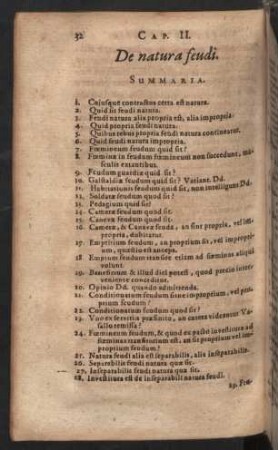 32 CAP. II.
De natura feudi.
SUMMARIA.
1. Cujusque contractus certa est natura.
2. Quid sit feudi natura.
3. Feudi natura alia propria est, alia impropria.
4. Quid propria feudi natura.
5. Quibus rebus propria feudi natura contineatur.
6. Quid feudi natura impropria.
7. Fœmineum feudum quid sit?
8. Fœminæ in feudum fœmineum non succedunt, masculis extantibus.
9. Feudum guardiæ quid sit?
10. Gastaldiæ feudum quid sit? Variant Dd.
11. Habitationis feudum quid sit, non intelligunt Dd.
12. Soldatæ feudum quid sit?
13. Pedagium quid sit?
14. Cameræ feudum quid sit.
15. Canevæ feudum quod sit.
16. Cameræ, & Canevæ feuda, an sint propria, vel impropria, dubitatur.
17. Emptitium feudum, an proprium sit, vel improprium, quæstio est anceps.
18. Emptum feudum transire etiam ad fœminas aliqui volunt.
19. Beneficium & illud dici potest, quod pretio interveniente conceditur.
20. Opinio Dd. quando admittenda.
21. Conditionatum feudum sitne improprium, vel proprium feudum?
22. Conditionatum feudum quod sit?
23. Vno ex feretrio præsumto, an cætera videantur Vasallo remissa?
24. Fœmineum feudum, & quod ex pacto investituræ ad fœminas transiturum est, an proprium sit vel improprium feudum?
25. Natura feudi alia est separabilis, alia inseparabilis.
26. Separabilis feudi natura quæ sit.
27. Inseparabilis feudi natura quæ sit.
28. Investitura est de inseparabili natura feudi.